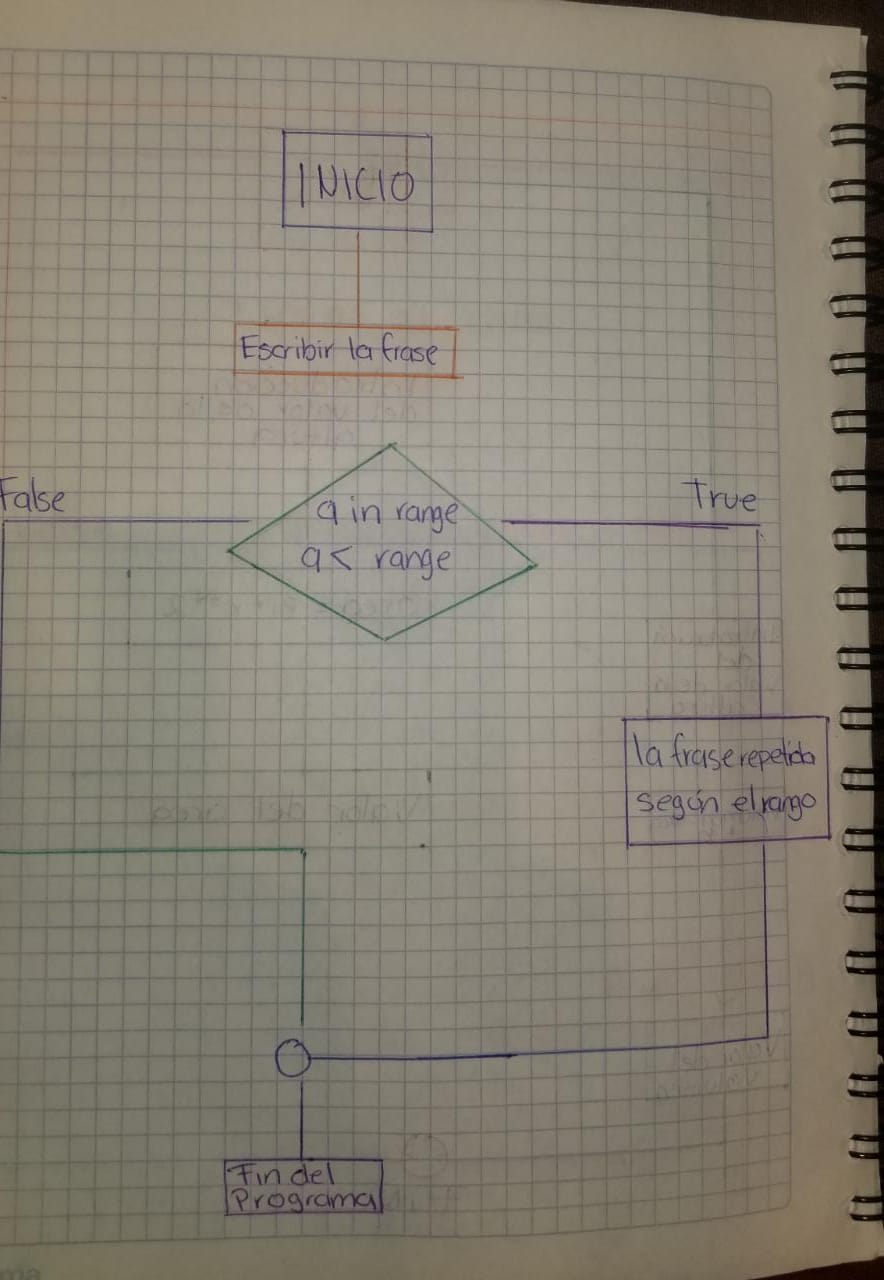 INICIO
Escribir la frase
False
True
a in range
a < range
la frase repetida
según el rango
Fin del
Programa